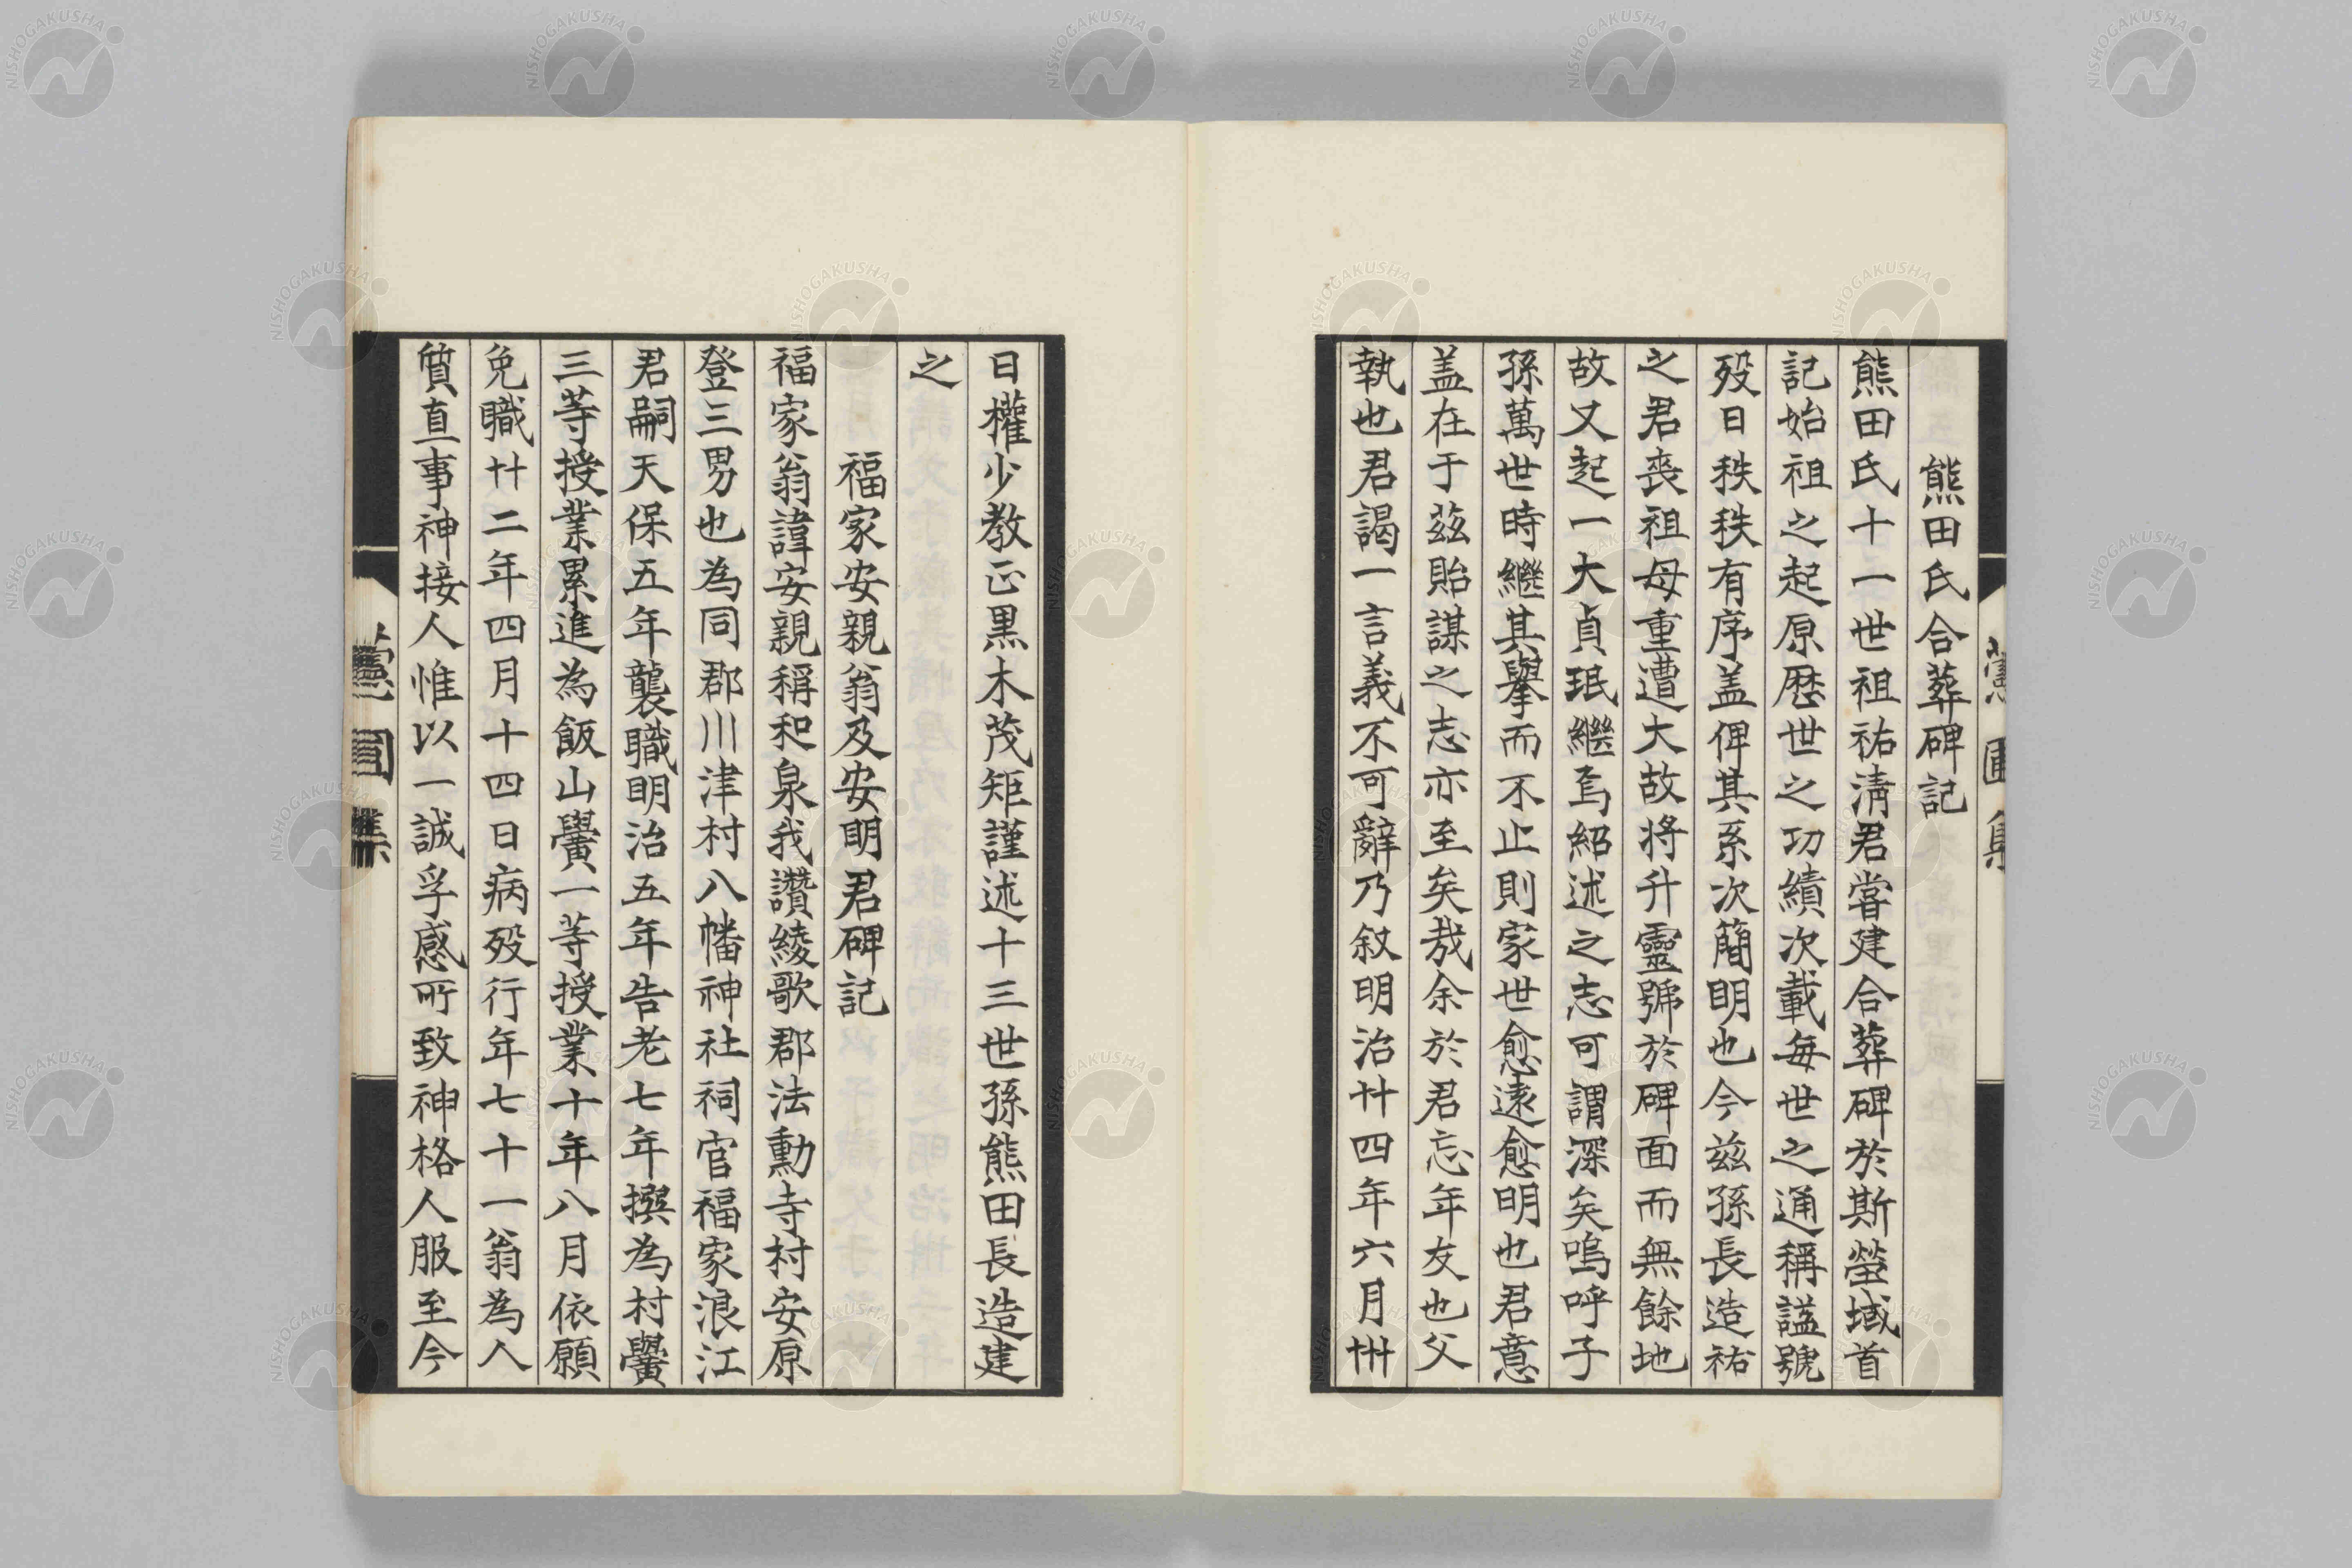 熊田氏合葬碑記
熊田氏十一世祖祐清君嘗建合葬碑於斯塋域首
記始祖之起原歴世之功績次載毎世之通稱謚號
歿日秩秩有序盖俾其系次簡明也今茲孫長造祐
之君喪祖母重遭大故将升靈號於碑面而無餘地
故又起一大貞珉繼焉紹述之志可謂深矣嗚呼子
孫萬世時繼其擧而不止則家世愈遠愈明也君意
盖在于茲貽謀之志亦至矣哉余於君忘年友也父
執也君謁一言義不可辭乃叙明治廿四年六月卅
日權少教正黒木茂矩謹述十三世孫熊田長造建
之
福家安親翁及安明君碑記
福家翁諱安親稱和泉我讚綾歌郡法勳寺村安原
登三男也為同郡川津村八幡神社祠官福家浪江
君嗣天保五年襲職明治五年告老七年撰為村黌
三等授業累進為飯山黌一等授業十年八月依願
免職廿二年四月十四日病歿行年七十一翁為人
質直事神接人惟以一誠孚感所致神格人服至今
NISHOGAKUSHA